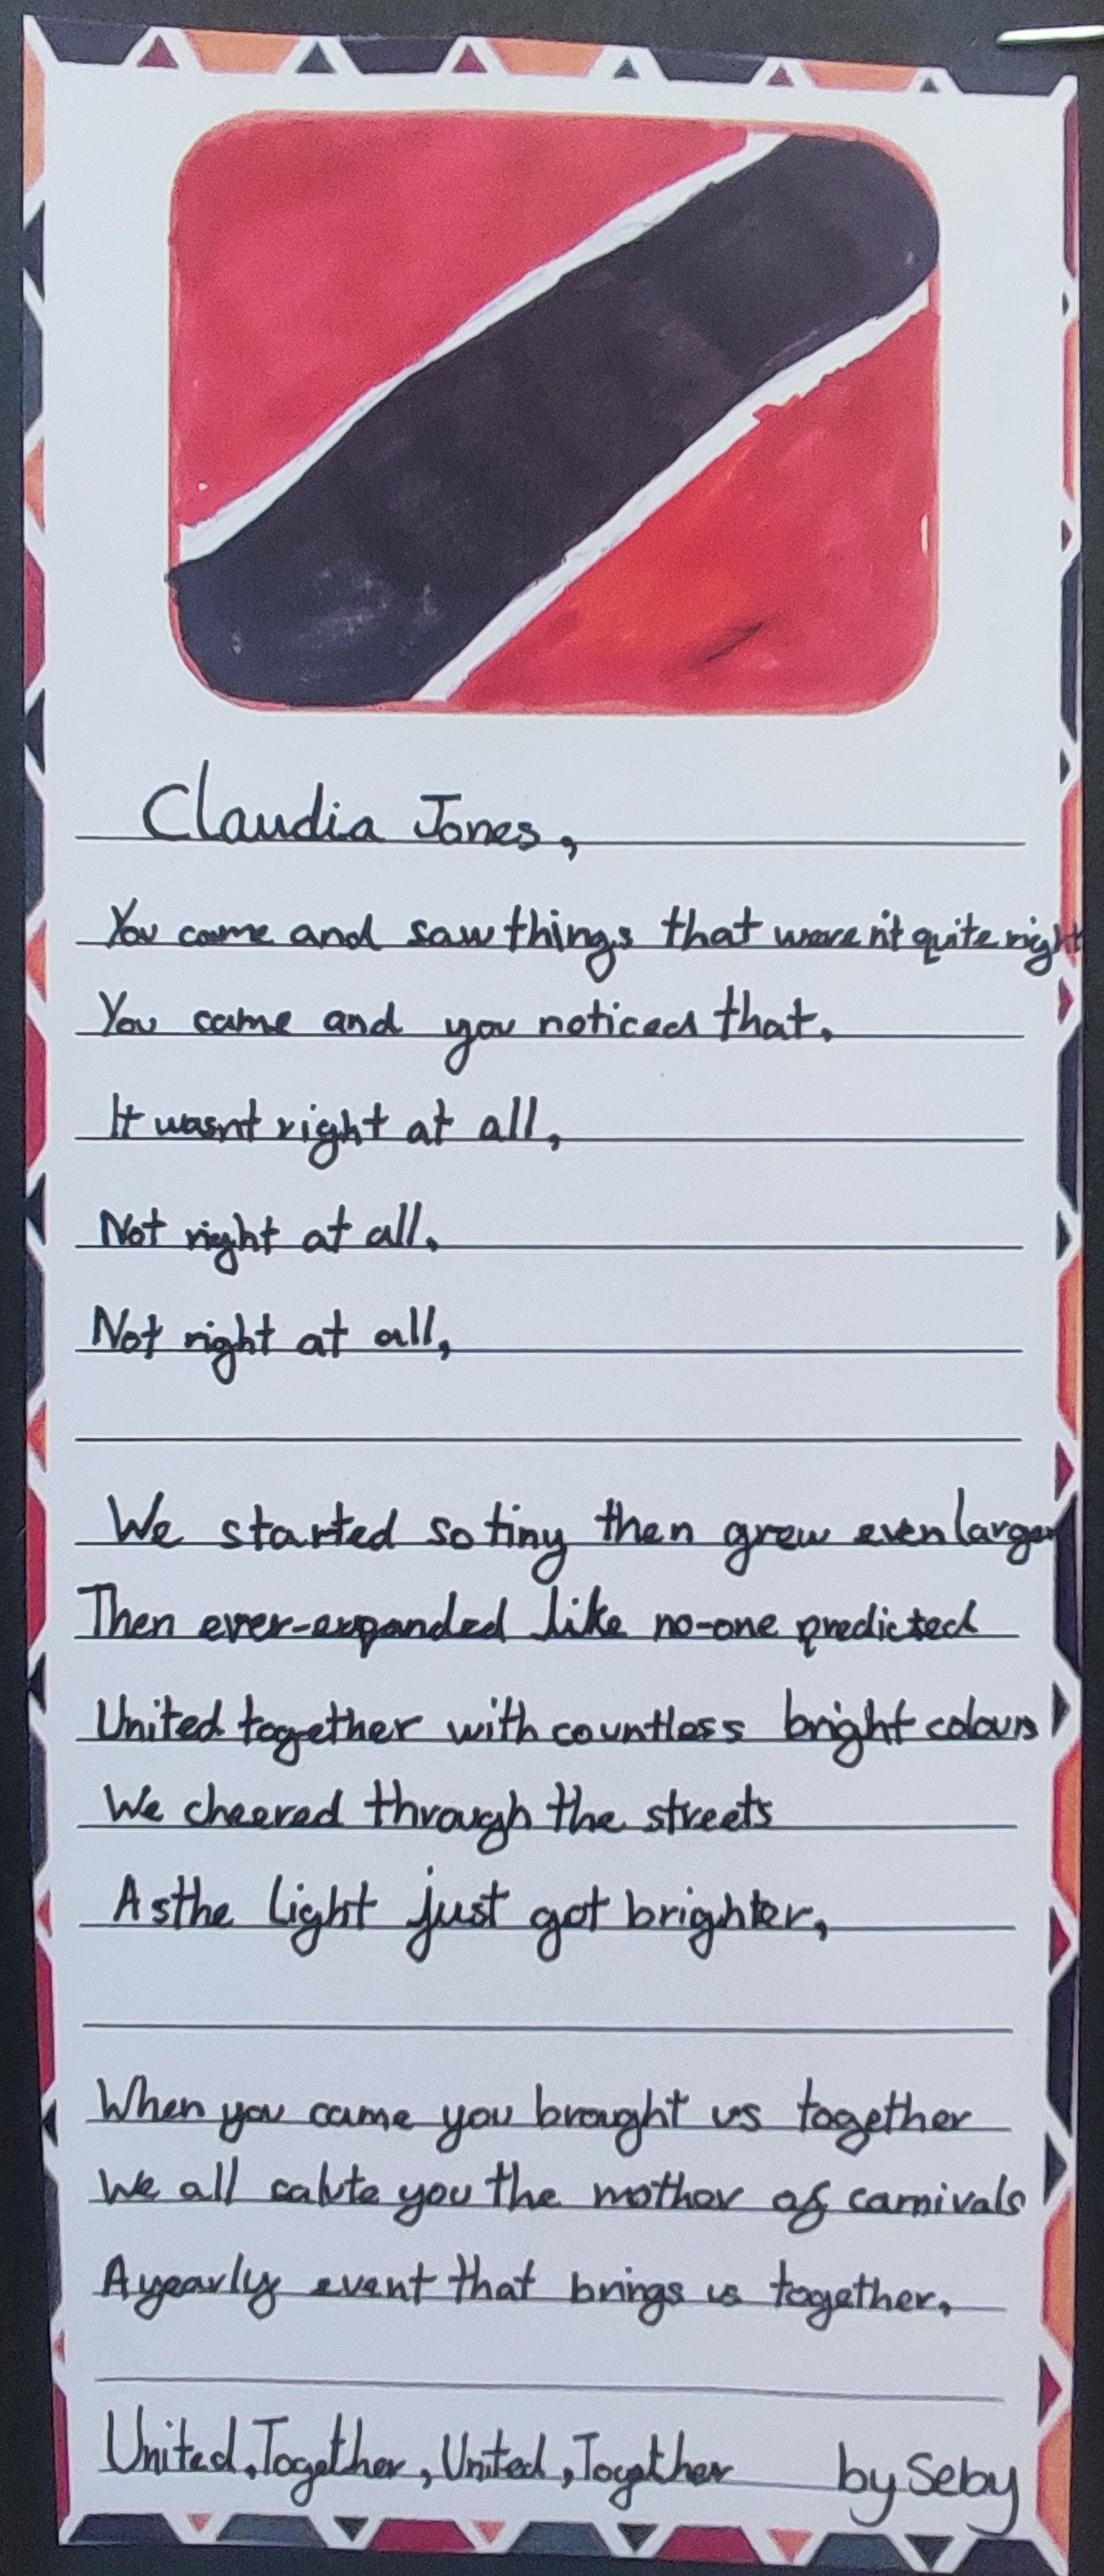 Claudia Jones,
You came and saw things that weren't quite right
You came and you noticed that.
It wasnt right at all,
Not right at all,
Not right at all,
We started so tiny then grew even larger
Then ever-expanded like no-one predicted
United together with countless bright colours
We cheered through the streets
As the light just got brighter,
When you came you brought us together
We all salute you the mother of carnivals
A yearly event that brings us together,
United, Together, United, Together by Seby